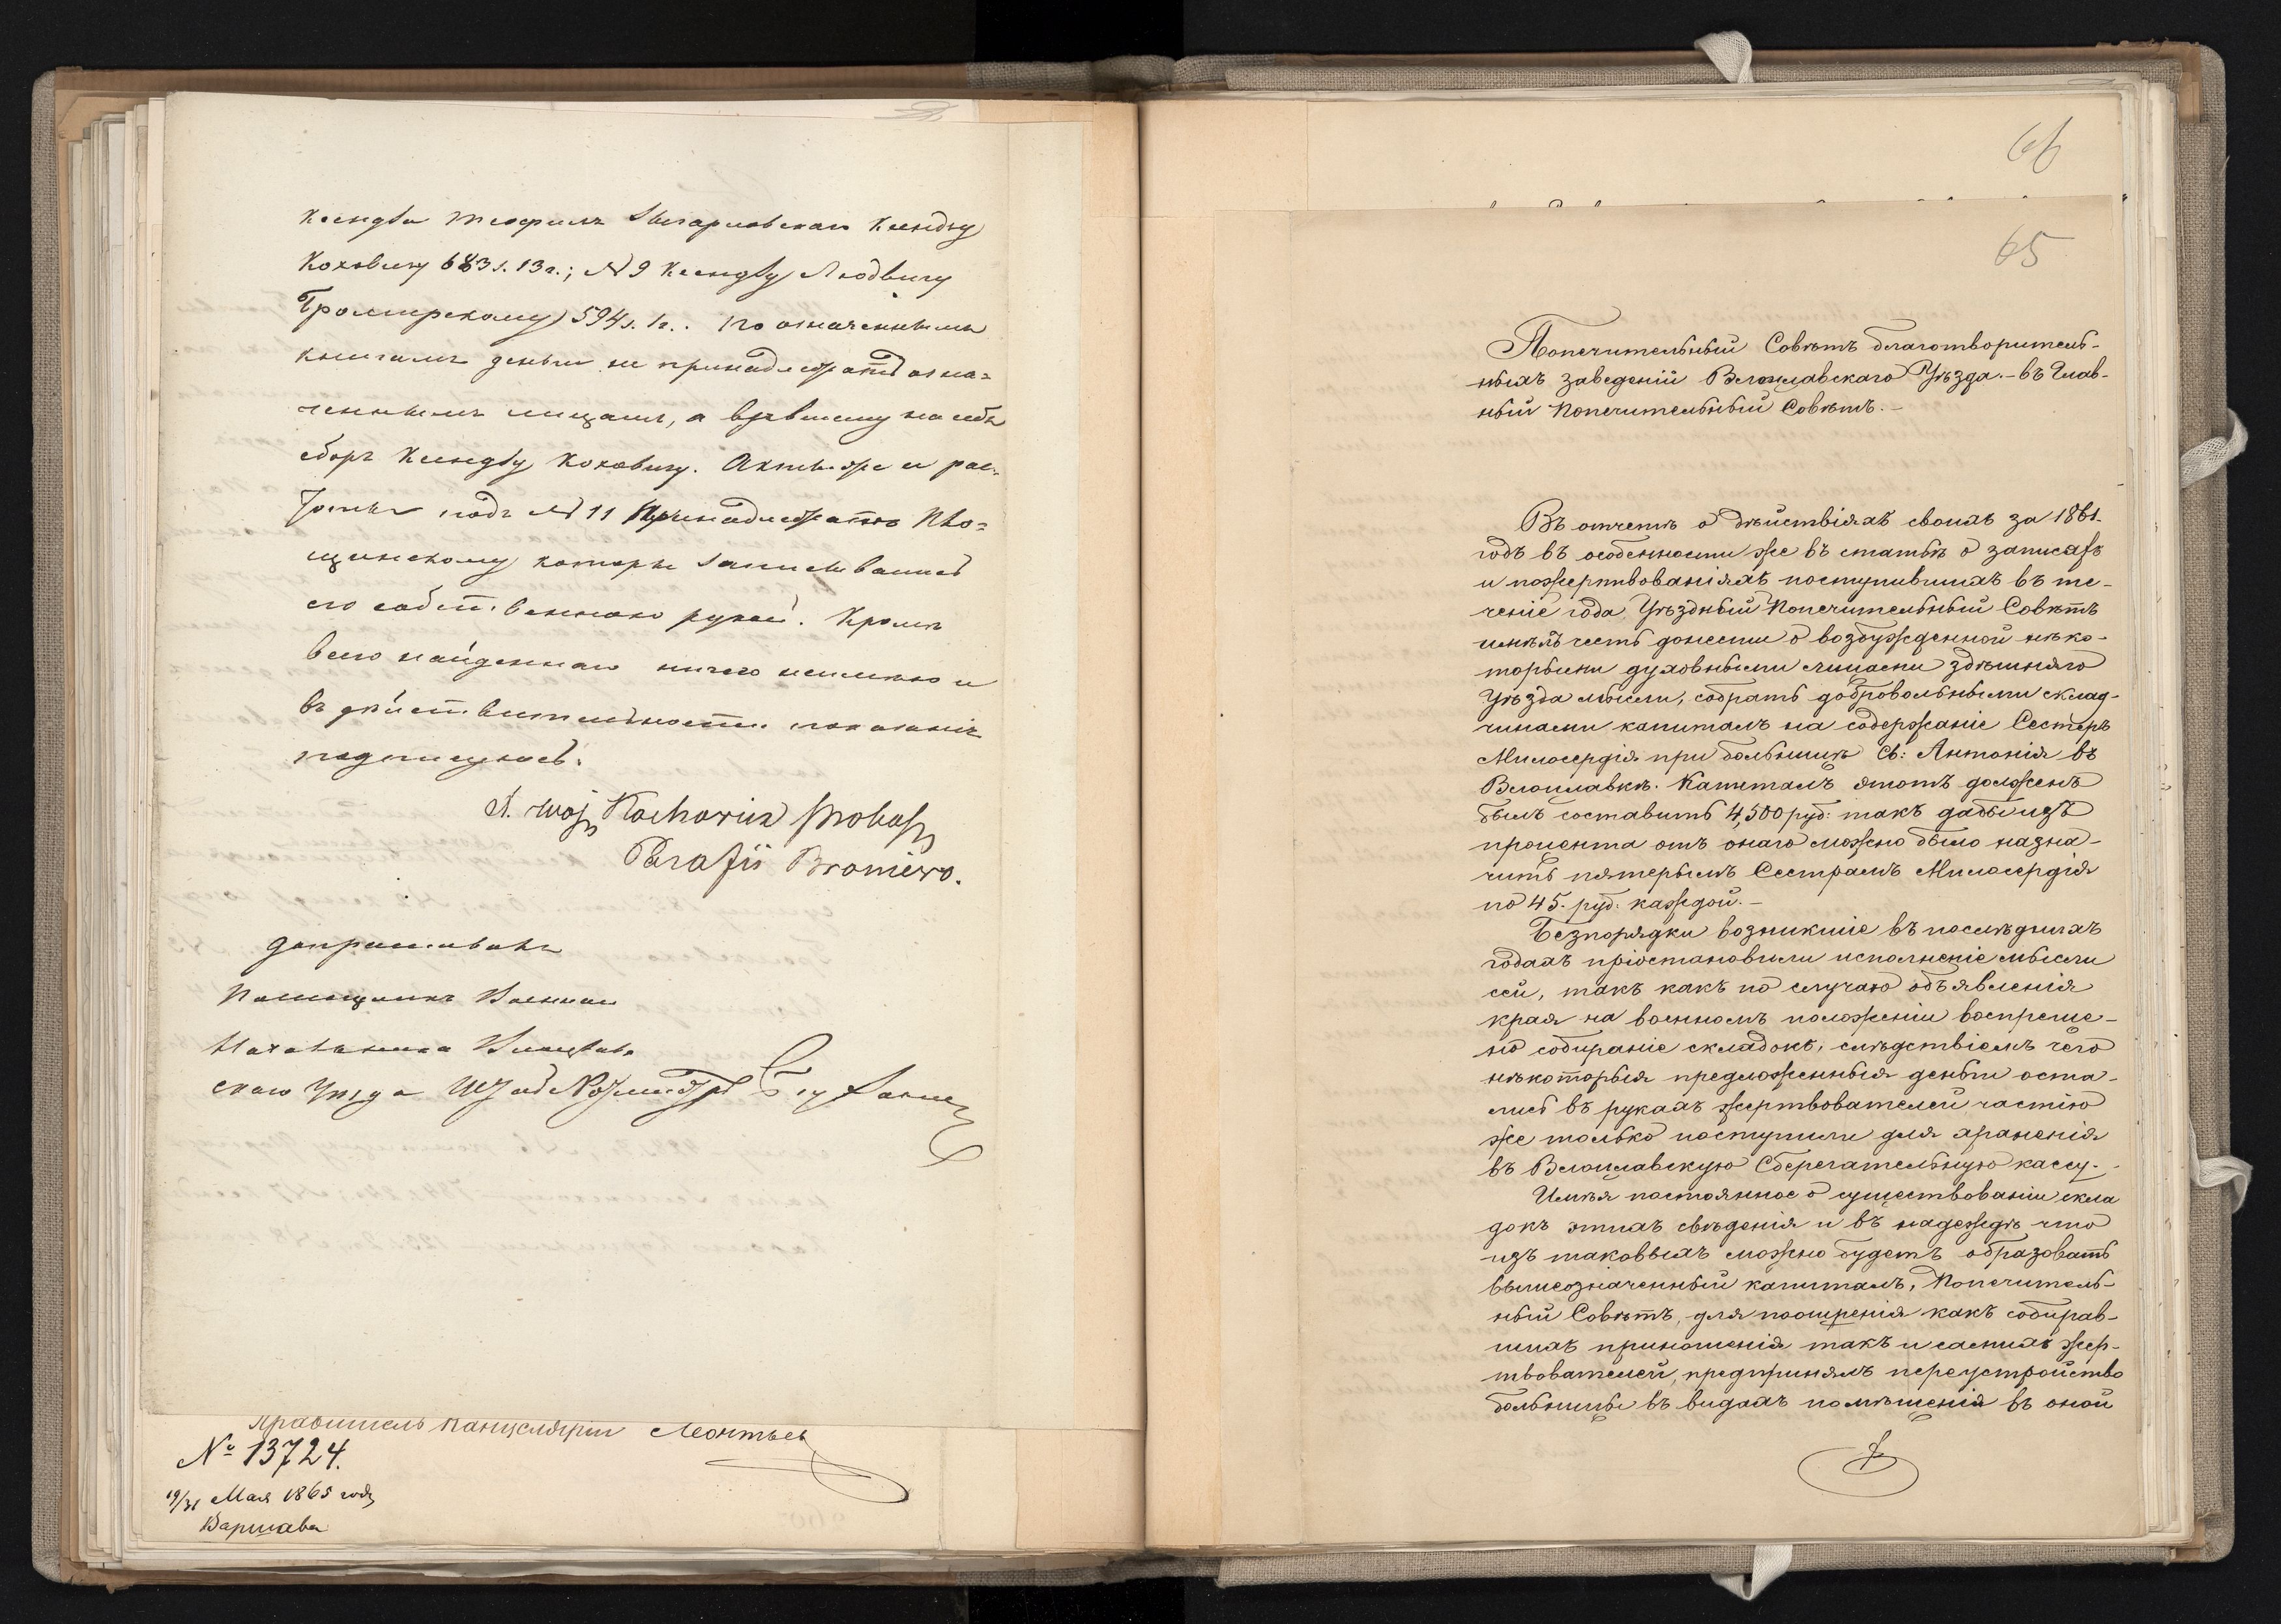 Ксендза Теофила Ксендзу
Коховичу 683 з. 13 г.; N 9 Ксендзу Людвигу
594 з. 1 г.. По означеннымъ
книгамъ деньги не принадлежатъ озна-
ченнымъ лицамъ, а взявшему на себя
сборъ Ксендзу Коховичу. Акты же и рас-
подъ N 11 принадлежатъ
которые записывались
его собственною рукою. Кромѣ
всего найденнаго ничего неимѣю и
въ дѣйствительности показанія
подписуюсь.
X. Woj Kochowicz Proboszcz
Parafii Broniewo.
допрашивалъ
Помощникъ Военнаго
Начальника Влоцлав-
скаго Уѣзда
Правитель Канцеляріи Леонтьев
№ 13724.
19/31 Мая 1865 года
Варшава
66
65
Попечительный Совѣтъ благотворитель-
ныхъ заведеній Влоцлавскаго Уѣзда.- въ Глав-
ный Попечительный Совѣтъ.-
Въ отчетѣ о дѣйствіяхъ своихъ за 1861.
годъ въ особенности же въ статьѣ о записяхъ
и пожертвованіяхъ поступившихъ въ те-
ченіе года, Уѣздный Попечительный Совѣтъ
имѣлъ честь донести о возбужденной нѣко-
торыми духовными лицами здѣшняго
Уѣзда мысли, собрать добровольными склад-
чинами капиталъ на содержаніе Сестеръ
Милосердія при больницѣ Св: Антонія въ
Влоцлавкѣ. Капиталъ этотъ долженъ
былъ составить 4,500 руб: такъ дабы изъ
процента отъ онаго можно было назна-
чить пятерымъ Сестрамъ Милосердія
по 45. руб: каждой.-
Безпорядки возникшіе въ послѣднихъ
годахъ пріостановили исполненіе мысли
сей, такъ какъ по случаю объявленія
края на военномъ положеніи воспреще-
но собираніе складокъ, слѣдствіемъ чего
нѣкоторыя предложенныя деньги оста-
лись въ рукахъ жертвователей частію
же только поступили для храненія
въ Влоцлавскую Сберегательную кассу.-
Имѣя постоянное о существованіи скла
докъ этихъ свѣденія и въ надеждѣ что
изъ таковыхъ можно будетъ образовать
вышеозначенный капиталъ, Попечитель-
ный Совѣтъ, для поощренія какъ собирав-
шихъ приношенія такъ и самихъ жер-
твователей, предпринялъ переустройство
больницы въ видахъ помѣщенія въ оной